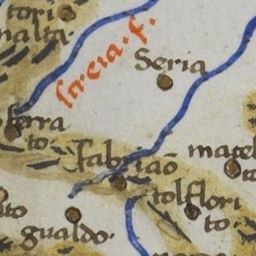 tori
malta.
sarcia. f.
Seria
serra
to.
fabriāo
matel
to
tolflori
to.
gualdo.